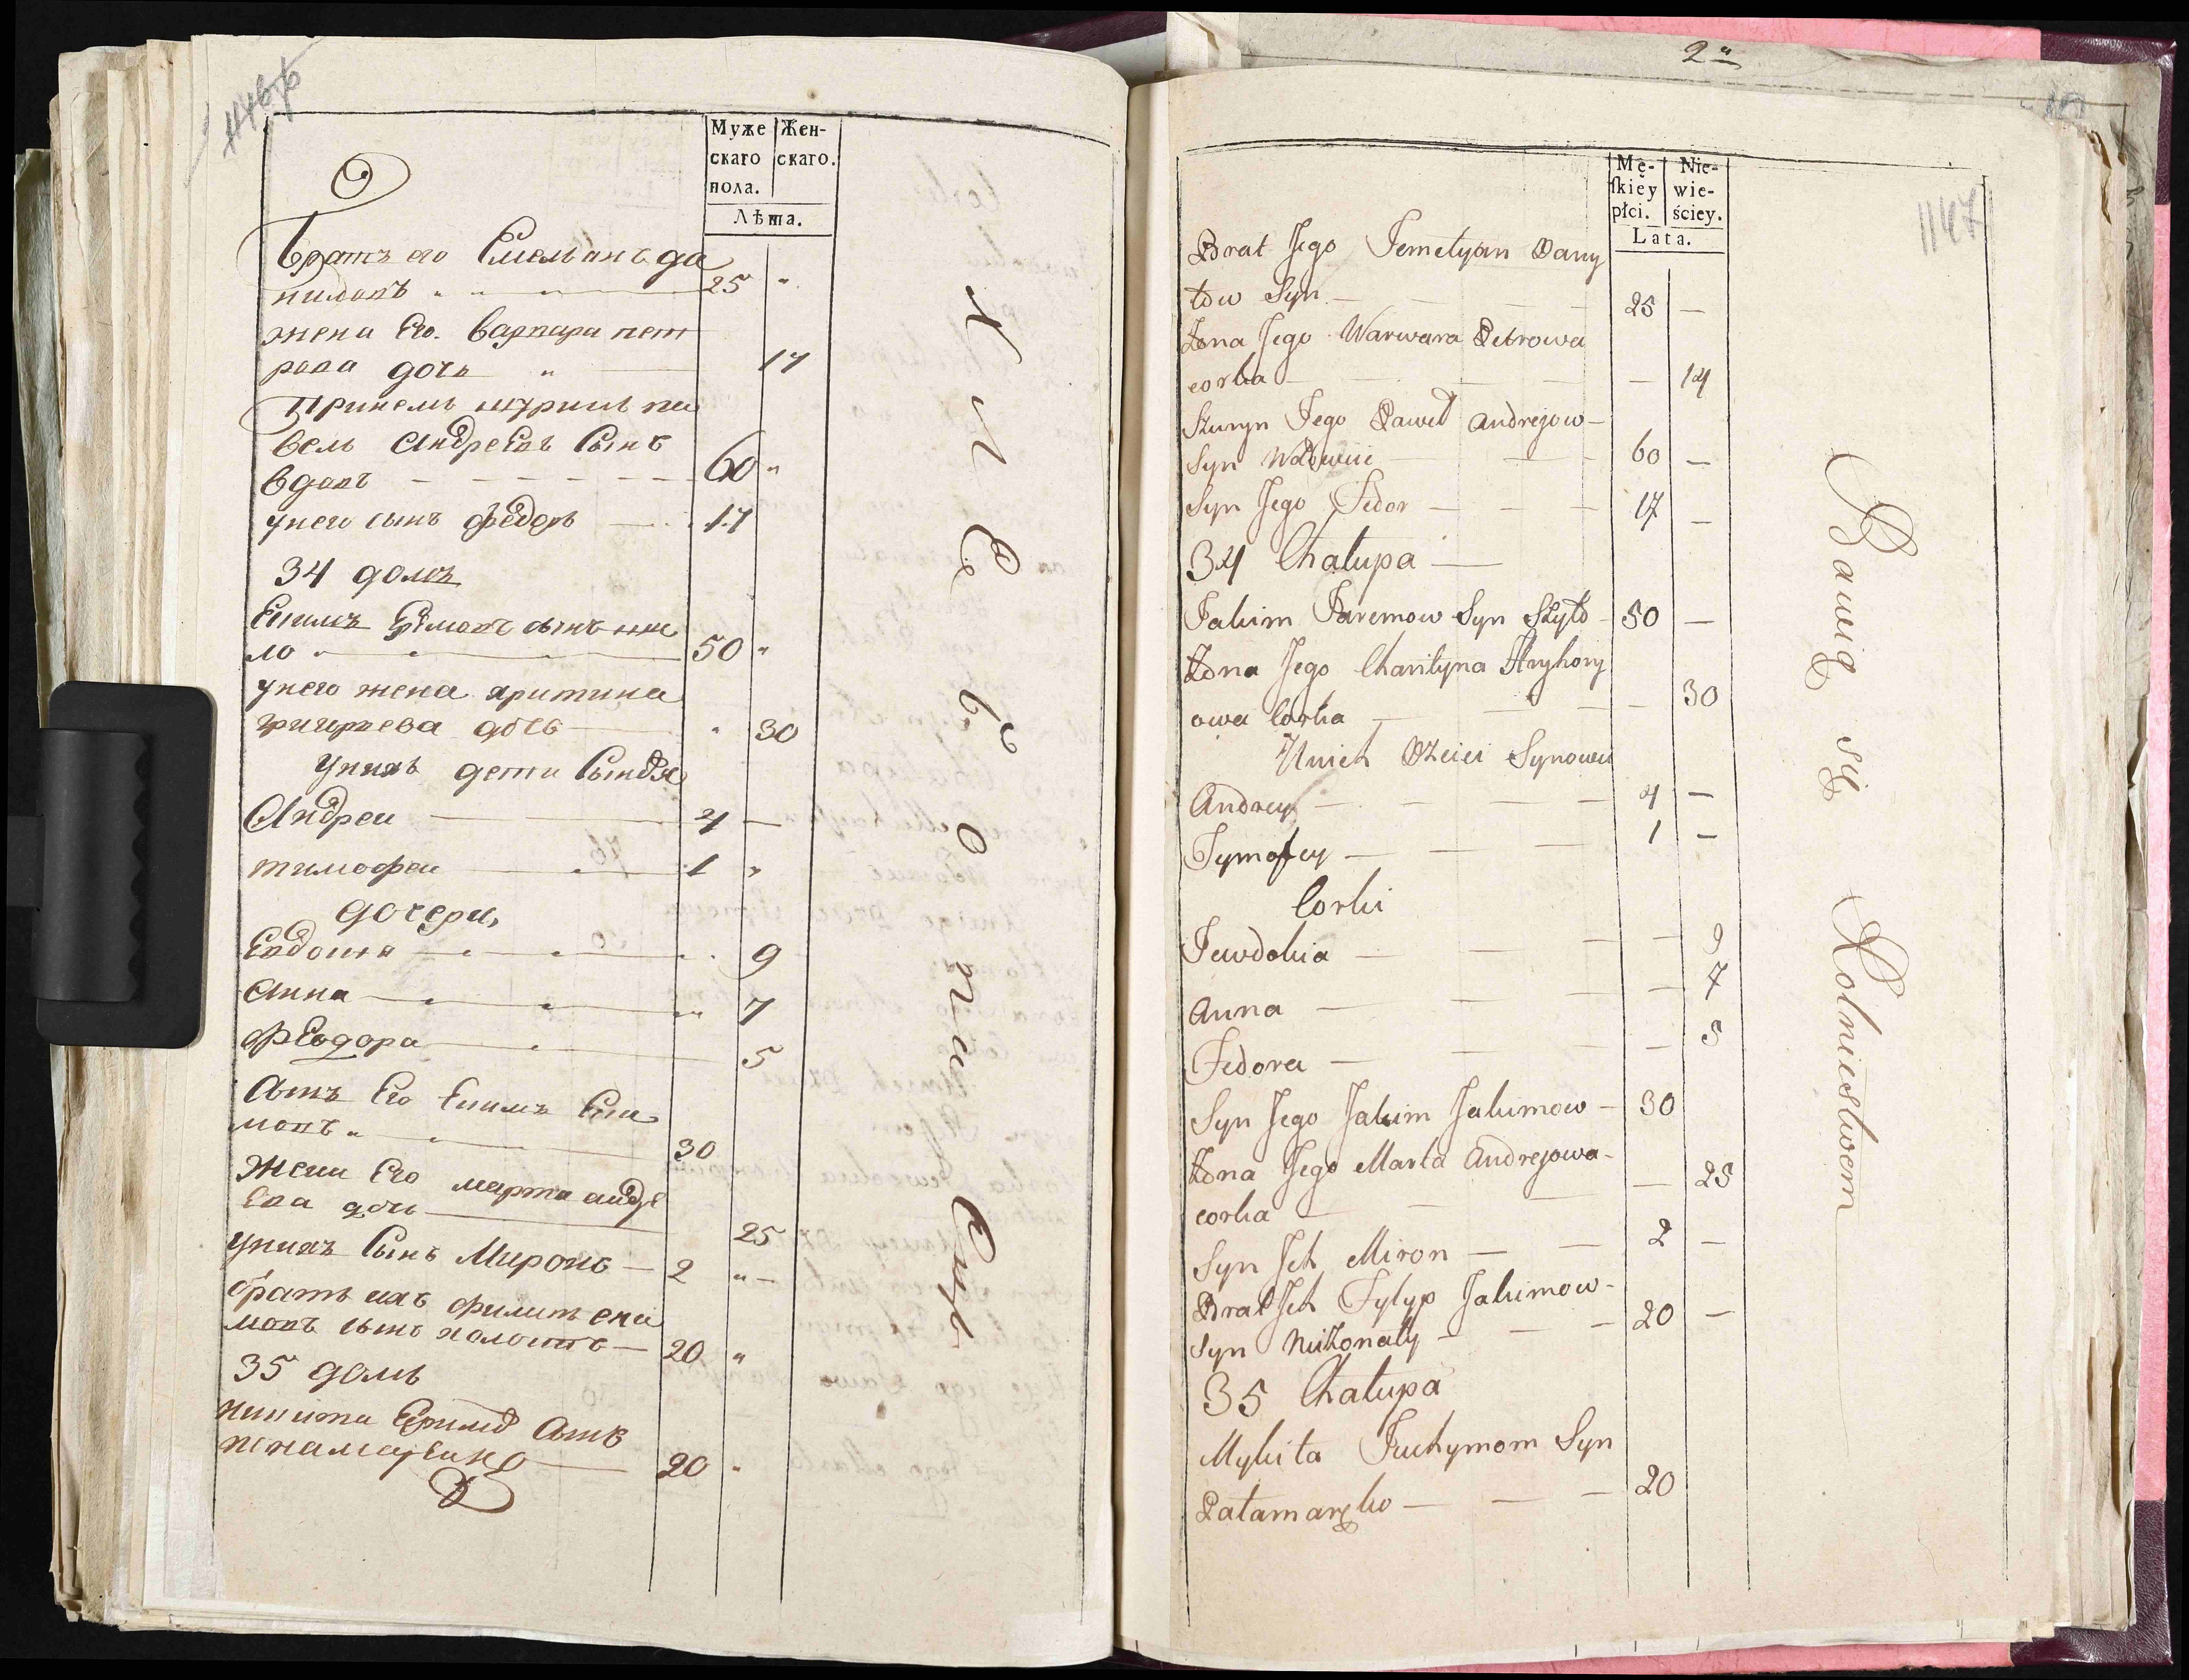 Муже
скаго
пола.
Жен-
скаго.
Лѣта.
братъ его Емельянъ да
ниловъ 25 "
жена Его. варвара пет
рова дочь " 17
Приемъ шуринъ па
велъ Андреевъ Сынъ
вдовъ 60 "
унего сынъ федоръ 17
34 домъ
Екимъ сынъ
ло 50 "
унего жена христина
григорьева дочь " 30
унихъ дети Сыновя
Андреи 4 —
тимофеи 1 "
дочери,
Евдокия 9
Анна 7
Феодора 5
Сынъ Его Екимъ Еки
мовъ " 30
Жена Его марта андре
Ева дочь 25
унихъ Сынъ Миронъ — 2 " —
братъ ихъ филипъ еки
мовъ сынъ холостъ — 20 "
35 домъ
никита Сынъ
20 "
Хлебопашецъ
2
Mę-
skiey
płci.
Nie-
wie-
ściey.
Lata.
1147
Brat Jego Jemelyan Dany
łow Syn — 25 —
Żona Jego Warwara Petrowa
corka — 14
Szuryn Jego Paweł Andrejow —
Syn Wdowiec 60 —
Syn Jego Fedor — 17 —
34 Chałupa —
Jakim Jaremow Syn Szyło — 50 —
Żona Jego Charityna Hryhory
owa Corka — 30
Unich Dzieci Synowie
Andrey — 4 —
Tymofey — 1 —
Corki
Jewdokia — 9
Anna — 7
Fedora — 5
Syn Jego Jakim Jakimow — 30
Żona Jego Marta Andrejowa —
corka — 25
Syn Ich Miron — 2 —
Brat Ich Fylyp Jakimow —
Syn Niżonaty — 20 —
35 Chałupa
Mykita Juchymom Syn
Patamarẹko — 20
Bawią się Rolnictwem